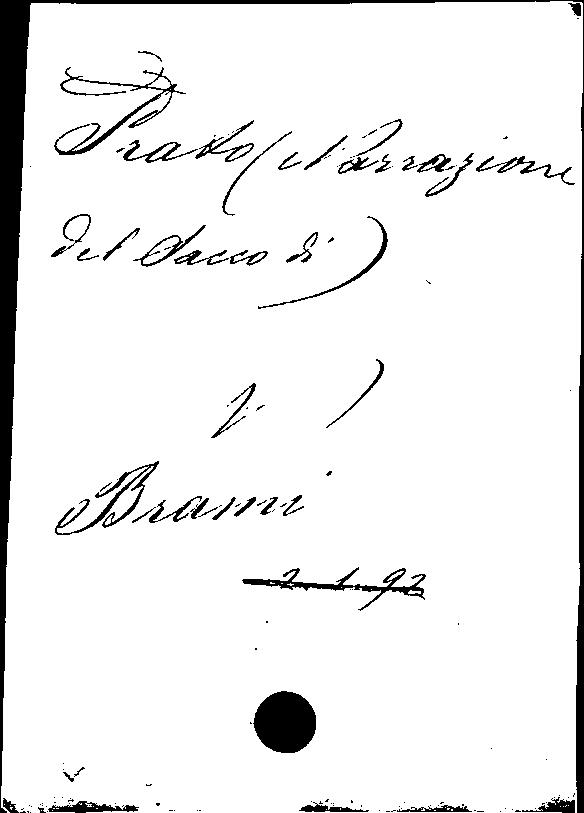 Prato (Narrazione
del Sacco di)
V. )
Brami
2. 1. 92